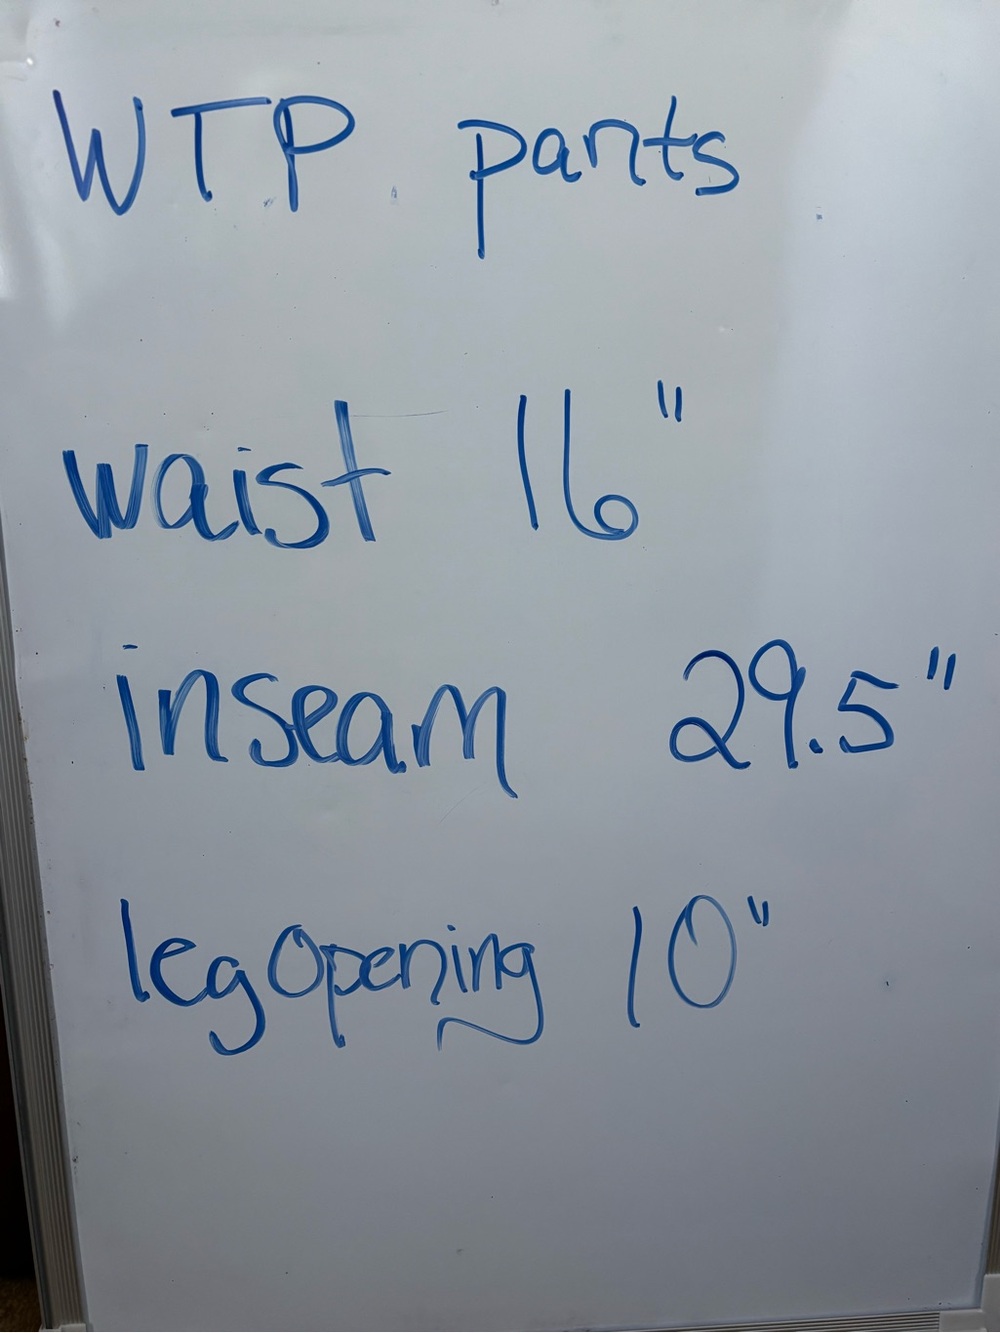 WTP pants
waist 16"
inseam 29.5"
leg Opening 10"